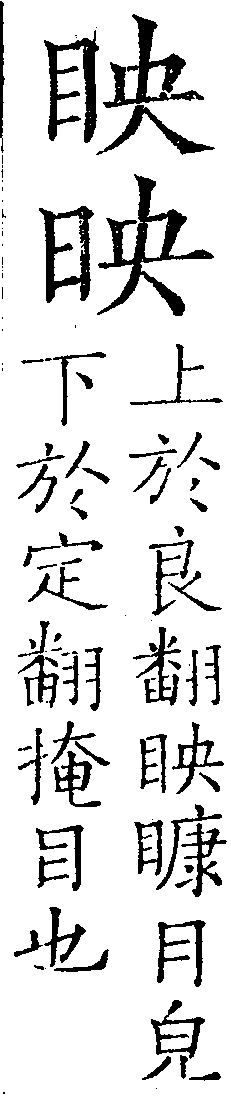 眏
映
上於良翻眏⿰目康目皃
下於定翻掩目也